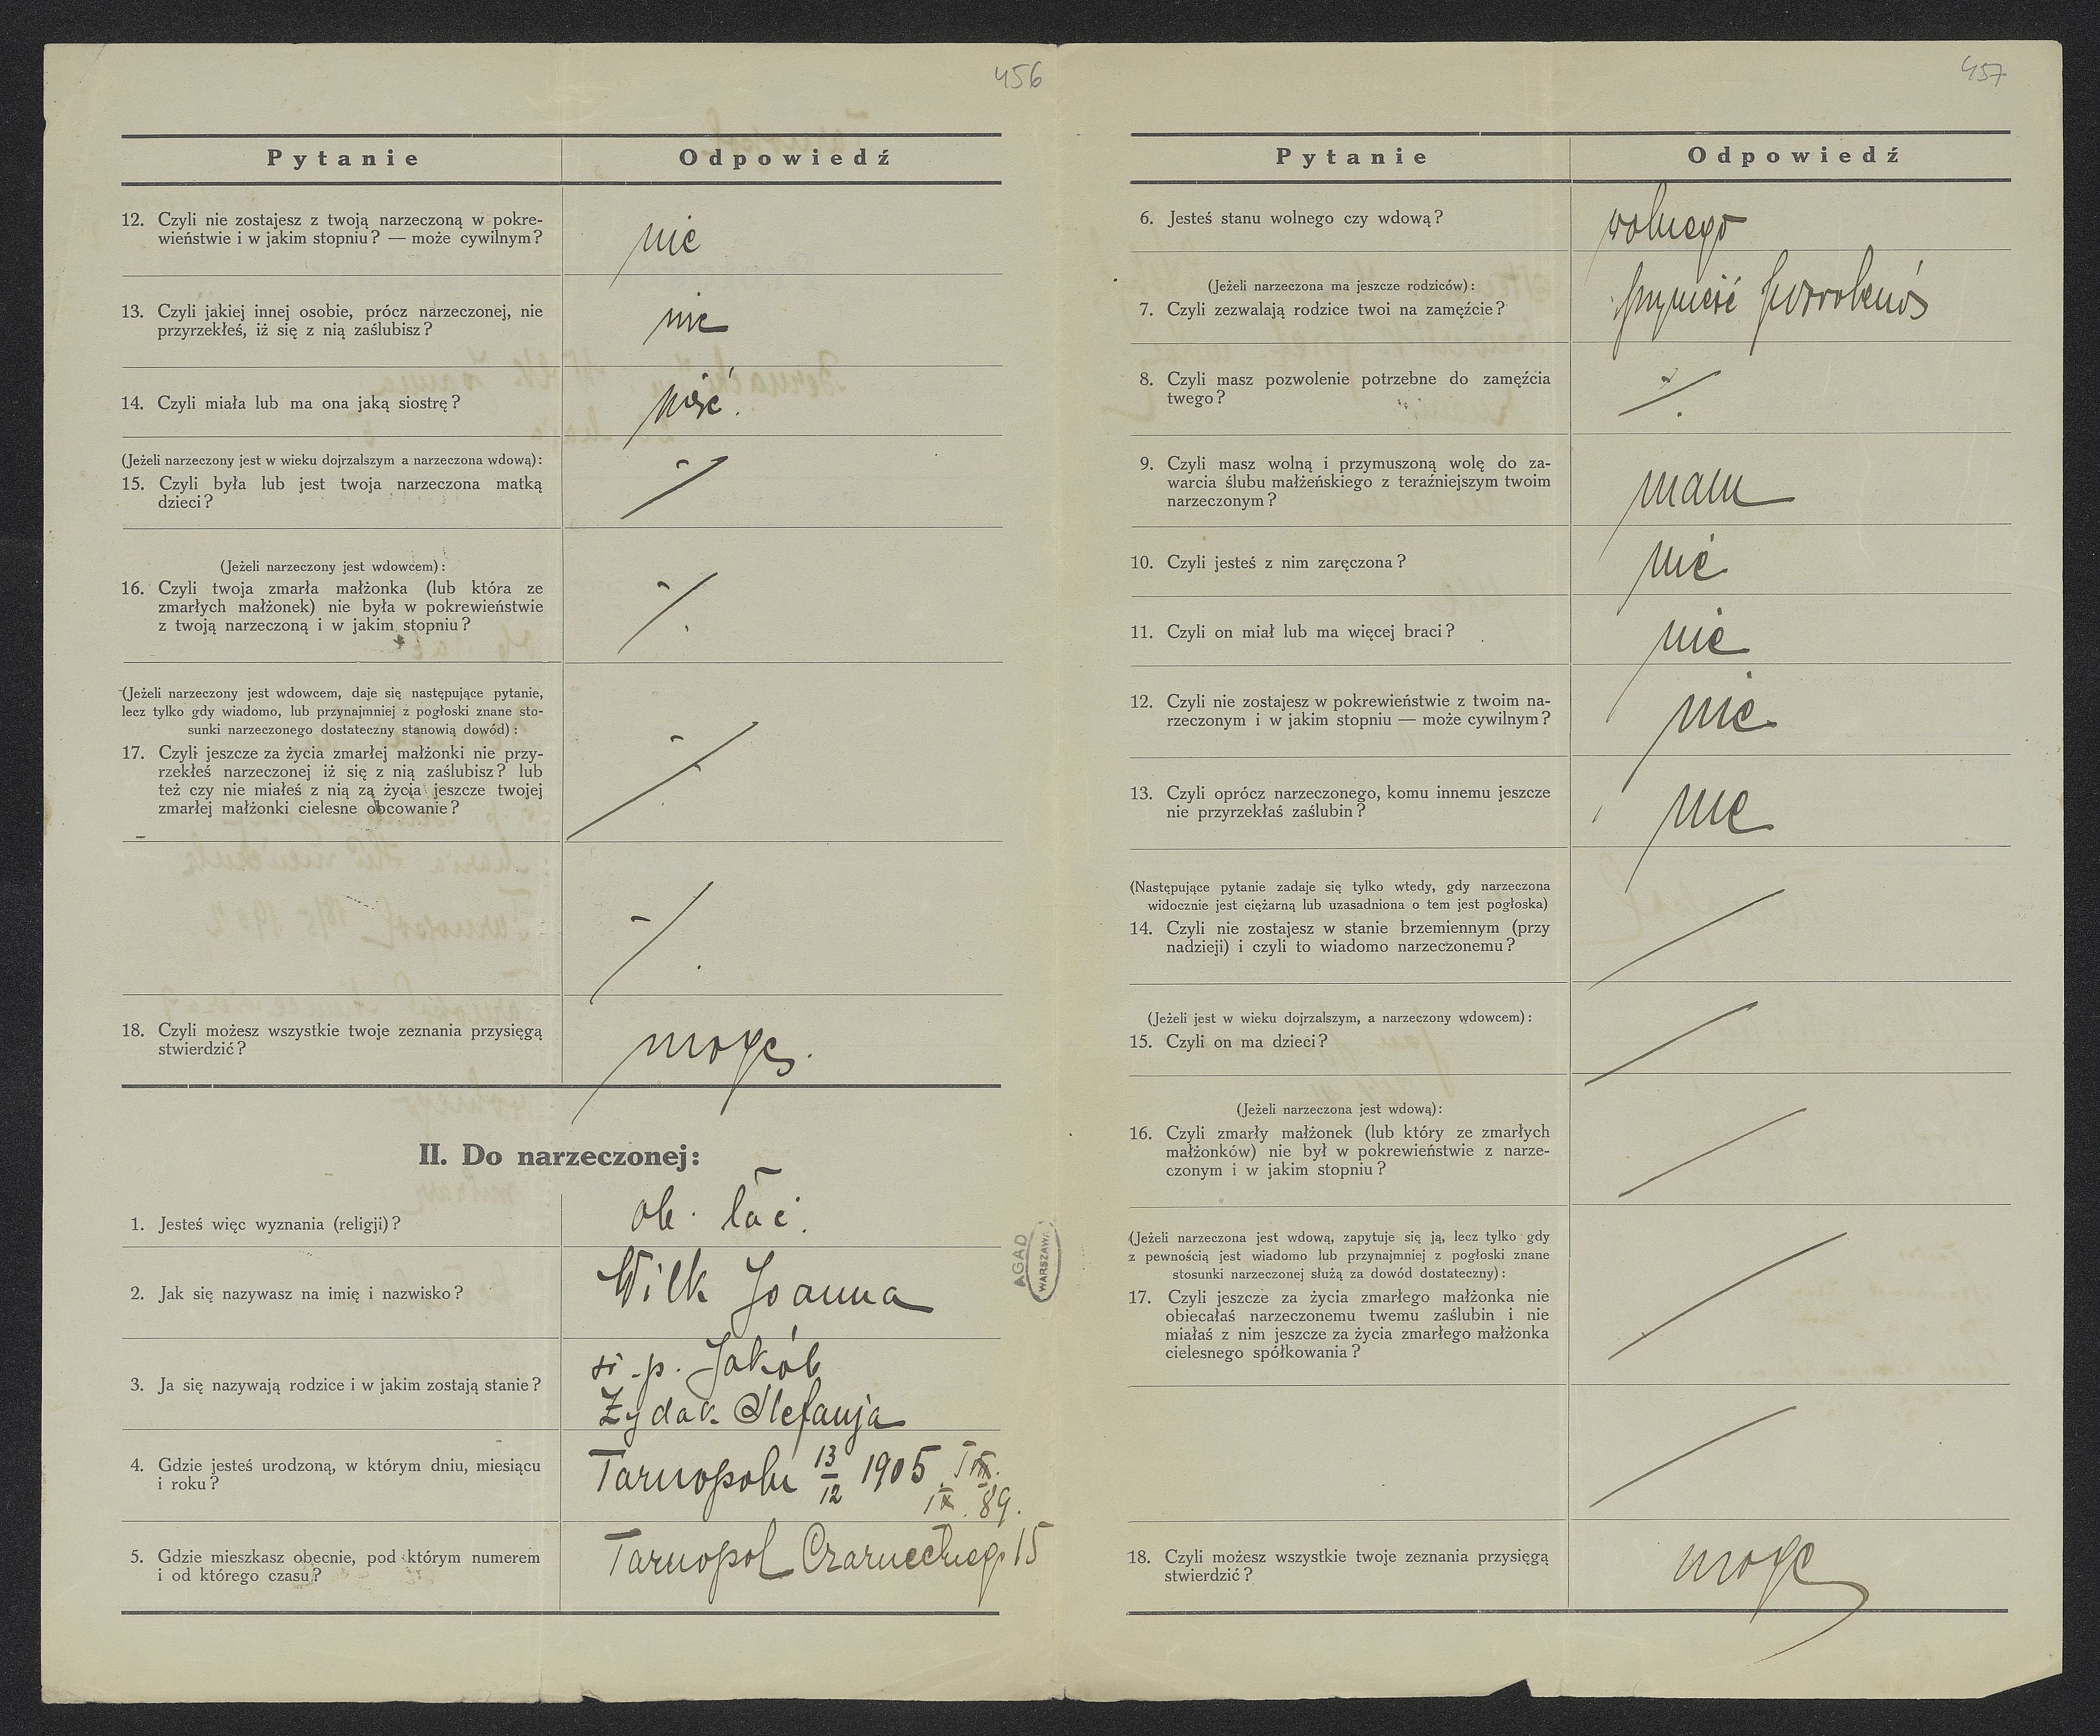 456
Pytanie Odpowiedź
12. Czyli nie zostajesz z twoją narzeczoną w pokre-
wieństwie i w jakim stopniu? — może cywilnym?
nie
13. Czyli jakiej innej osobie, prócz narzeczonej, nie
przyrzekłeś, iż się z nią zaślubisz?
nie
14. Czyli miała lub ma ona jaką siostrę?
(Jeżeli narzeczony jest w wieku dojrzalszym a narzeczona wdową):
15. Czyli była lub jest twoja narzeczona matką
dzieci?
(Jeżeli narzeczony jest wdowcem):
16. Czyli twoja zmarła małżonka (lub która ze
zmarłych małżonek) nie była w pokrewieństwie
z twoją narzeczoną i w jakim stopniu?
(Jeżeli narzeczony jest wdowcem, daje się następujące pytanie,
lecz tylko gdy wiadomo, lub przynajmniej z pogłoski znane sto-
sunki narzeczonego dostateczny stanowią dowód):
17. Czyli jeszcze za życia zmarłej małżonki nie przy-
rzekłeś narzeczonej iż się z nią zaślubisz? lub
też czy nie miałeś z nią za życia jeszcze twojej
zmarłej małżonki cielesne obcowanie?
18. Czyli możesz wszystkie twoje zeznania przysięgą
stwierdzić?
mogę.
II. Do narzeczonej:
1. Jesteś więc wyznania (religji)?
ob. łać.
2. Jak się nazywasz na imię i nazwisko?
Wilk Joanna
3. Ja się nazywają rodzice i w jakim zostają stanie?
ś. p. Jakób
Żydak Stefanja
4. Gdzie jesteś urodzoną, w którym dniu, miesiącu
i roku?
Tarnopolu 13/12 1905
89.
5. Gdzie mieszkasz obecnie, pod którym numerem
i od którego czasu?
Tarnopol Czarneckiego 15
AGAD
WARSZAWA
457
Pytanie Odpowiedź
6. Jesteś stanu wolnego czy wdową?
wolnego
(Jeżeli narzeczona ma jeszcze rodziców):
7. Czyli zezwalają rodzice twoi na zamęźcie?
8. Czyli masz pozwolenie potrzebne do zamęźcia
twego?
9. Czyli masz wolną i przymuszoną wolę do za-
warcia ślubu małżeńskiego z teraźniejszym twoim
narzeczonym?
mam
10. Czyli jesteś z nim zaręczona?
nie
11. Czyli on miał lub ma więcej braci?
nie
12. Czyli nie zostajesz w pokrewieństwie z twoim na-
rzeczonym i w jakim stopniu — może cywilnym?
nie
13. Czyli oprócz narzeczonego, komu innemu jeszcze
nie przyrzekłaś zaślubin?
nie
(Następujące pytanie zadaje się tylko wtedy, gdy narzeczona
widocznie jest ciężarną lub uzasadniona o tem jest pogłoska)
14. Czyli nie zostajesz w stanie brzemiennym (przy
nadzieji) i czyli to wiadomo narzeczonemu?
(Jeżeli jest w wieku dojrzalszym, a narzeczony wdowcem):
15. Czyli on ma dzieci?
(Jeżeli narzeczona jest wdową):
16. Czyli zmarły małżonek (lub który ze zmarłych
małżonków) nie był w pokrewieństwie z narze-
czonym i w jakim stopniu?
(Jeżeli narzeczona jest wdową, zapytuje się ją, lecz tylko gdy
z pewnością jest wiadomo lub przynajmniej z pogłoski znane
stosunki narzeczonej służą za dowód dostateczny):
17. Czyli jeszcze za życia zmarłego małżonka nie
obiecałaś narzeczonemu twemu zaślubin i nie
miałaś z nim jeszcze za życia zmarłego małżonka
cielesnego spółkowania?
18. Czyli możesz wszystkie twoje zeznania przysięgą
stwierdzić?
mogę